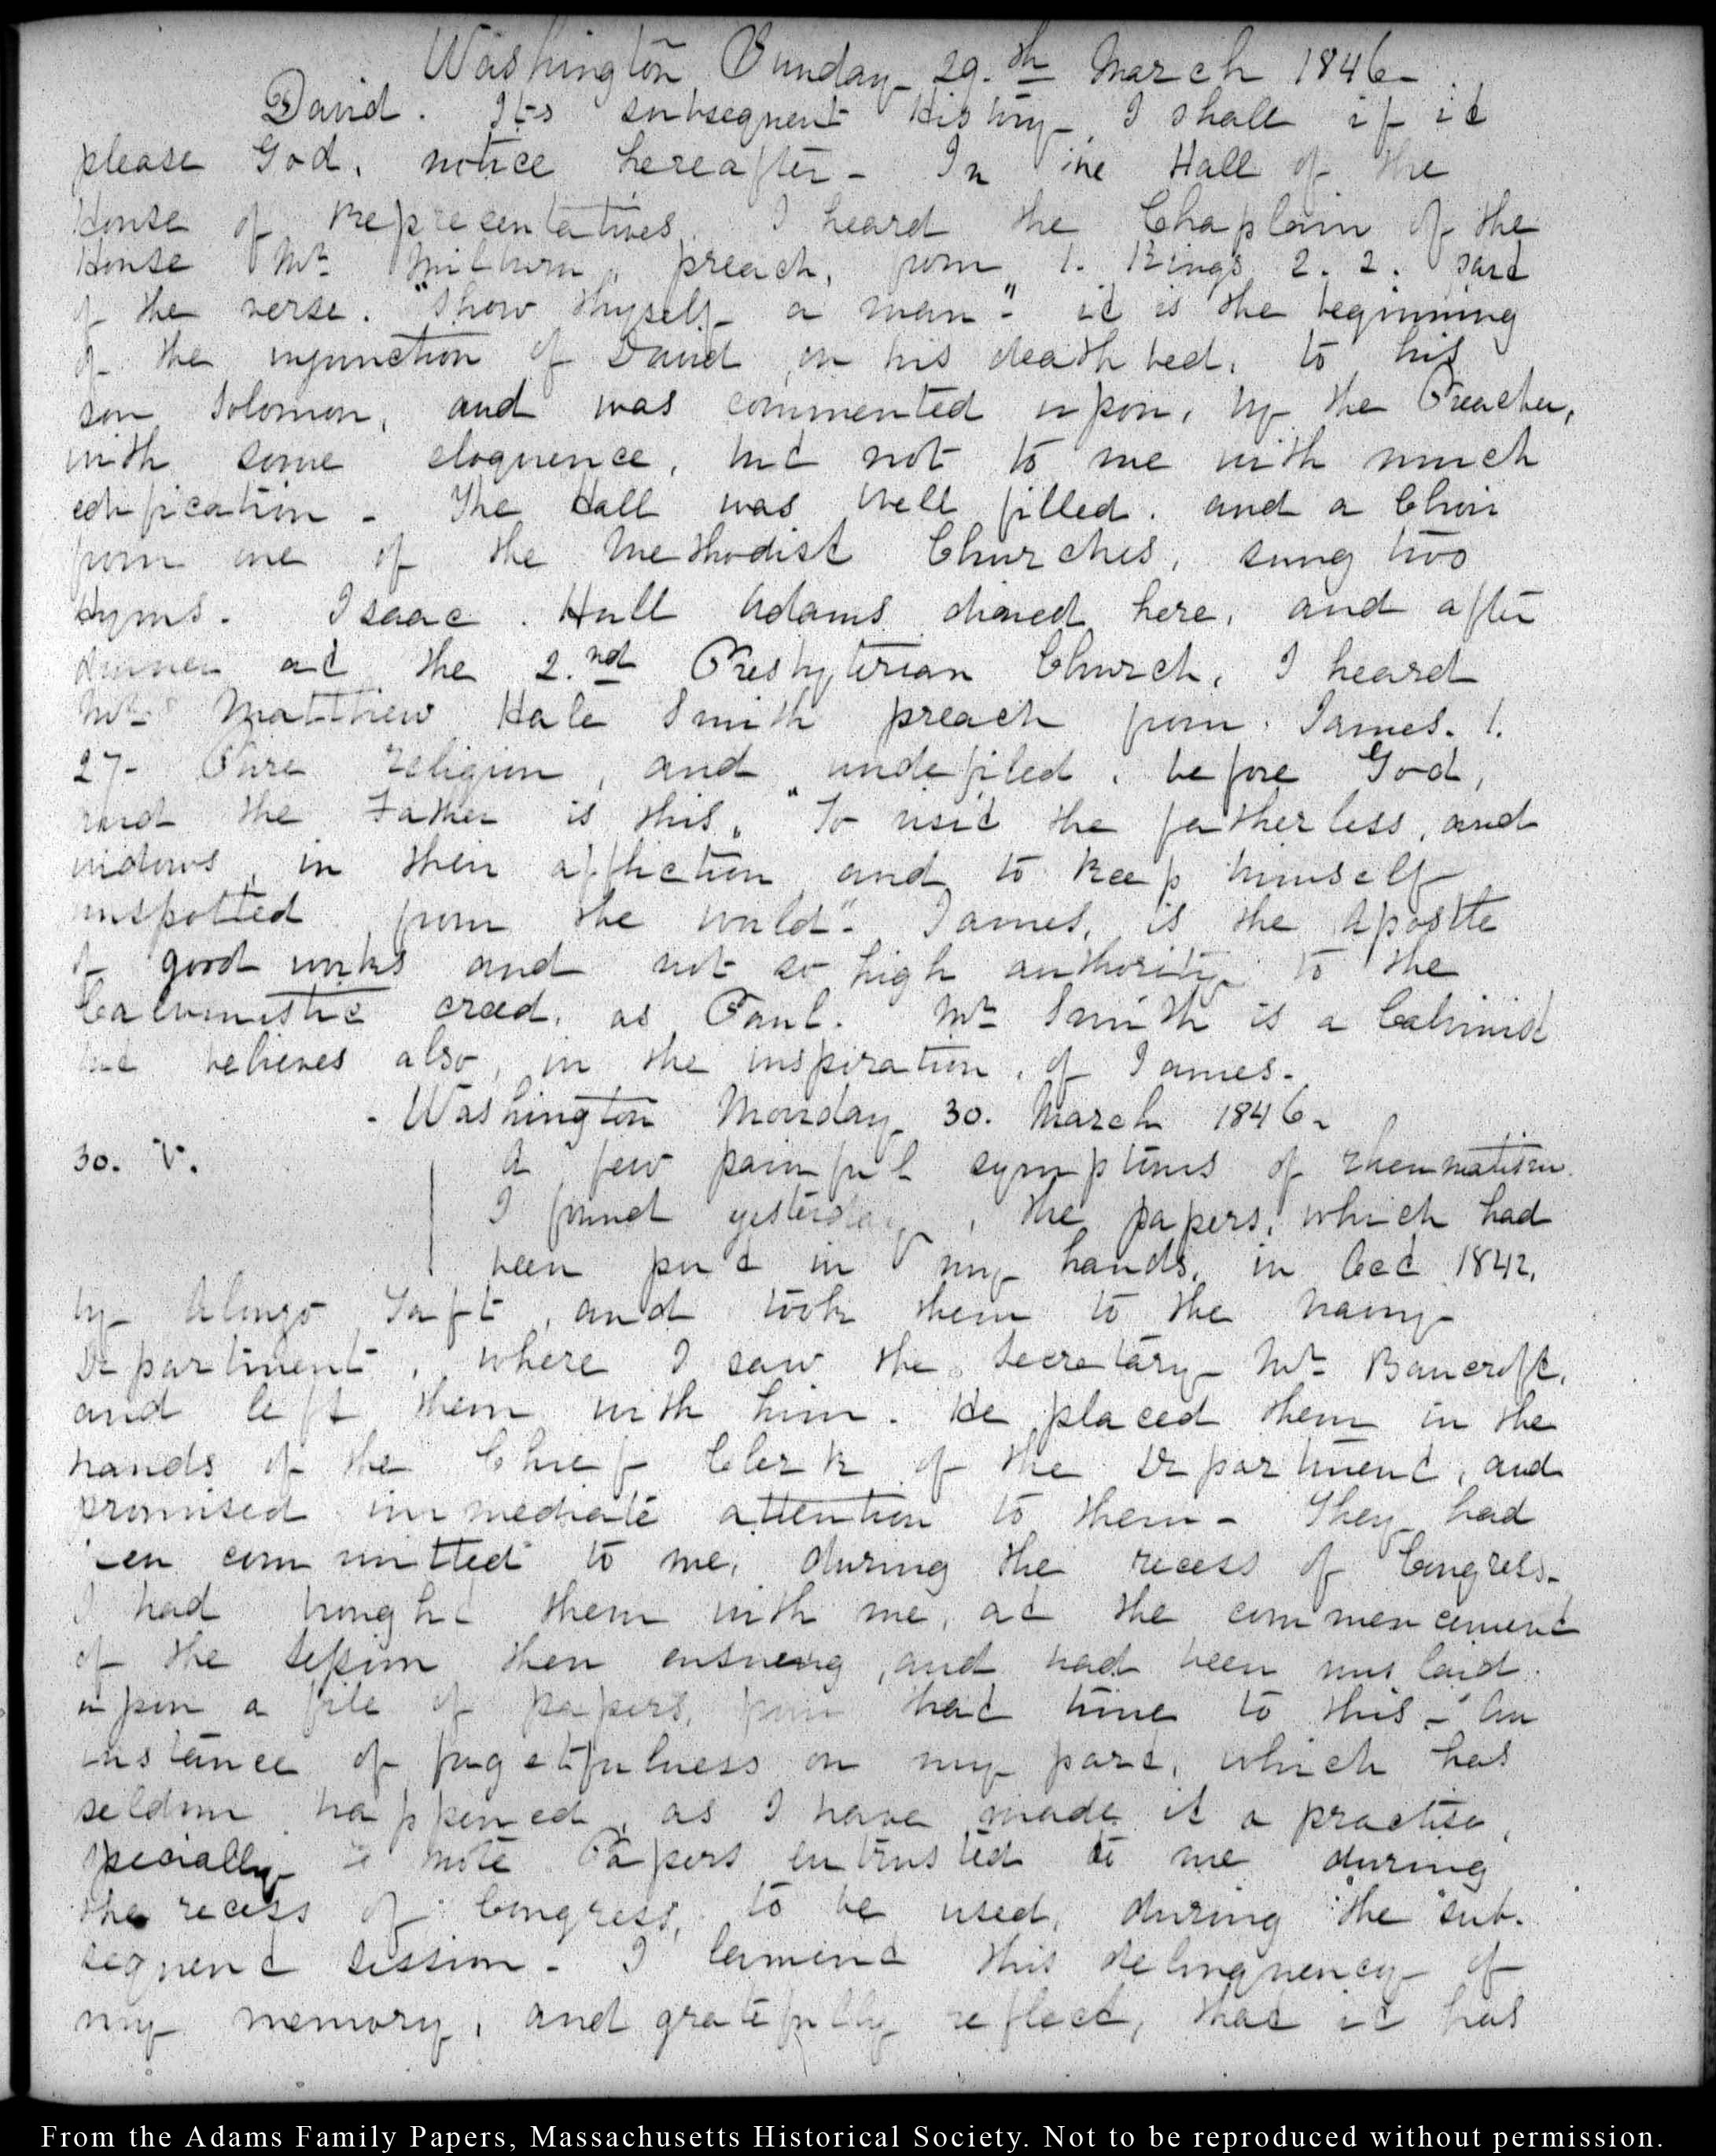 Washington Sunday 29.th March 1846-
David. Its subsequent History, I shall if it
please God, notice hereafter - In the Hall of the
House of Representatives. I heard the Chaplain of the
House Mr Milburn, preach, from 1. Kings 2. 2. part
of the verse. "Show thyself a man-" it is the beginning
of the injunction of David on his death bed, to his
son Solomon, and was commented upon, by the Preacher,
with some eloquence, but not to me with much
edification - The Hall was well filled. and a Choir
from one of the Methodist Churches, sung two
Hyms. Isaac. Hull Adams dined here, and after
dinner at the 2.nd Presbyterian Church, I heard
Mr Matthew Hale Smith preach from. James. 1.
27- Pure religion, and undefiled, before God,
and the Father is this, "To visit the fatherless, and
widows, in their affliction and to keep himself
unspotted from the world". James, is the Apostle
of good works and not so high authority to the
Calvinistic creed, as Paul. Mr Smith is a Calvinist
but believes also, in the inspiration, of James.
- Washington Monday 30. March 1846-
30. V. A few painful symptoms of rheumatism.
I found yesterday, the papers, which had
been put in my hands, in Oct 1842,
by Alonzo Taft, and took them to the Navy
Department, where I saw the Secretary Mr Bancroft,
and left them with him. He placed them in the
hands of the Chief Clerk of the Department, and
promised immediate attention to them - They had
been committed to me, during the recess of Congress-
I had brought them with me, at the commencement
of the session then ensueing, and had been mislaid
upon a file of papers, from that time to this - An
instance of forgetfulness on my part, which has
seldom happened, as I have made it a practise,
specially to note Papers entrusted to me during
the recess of Congress, to be used, during the sub-
sequent session - I lament this delinquency of
my memory, and gratefully reflect, that it has
From the Adams Family Papers, Massachusetts Historical Society. Not to be reproduced without permission.